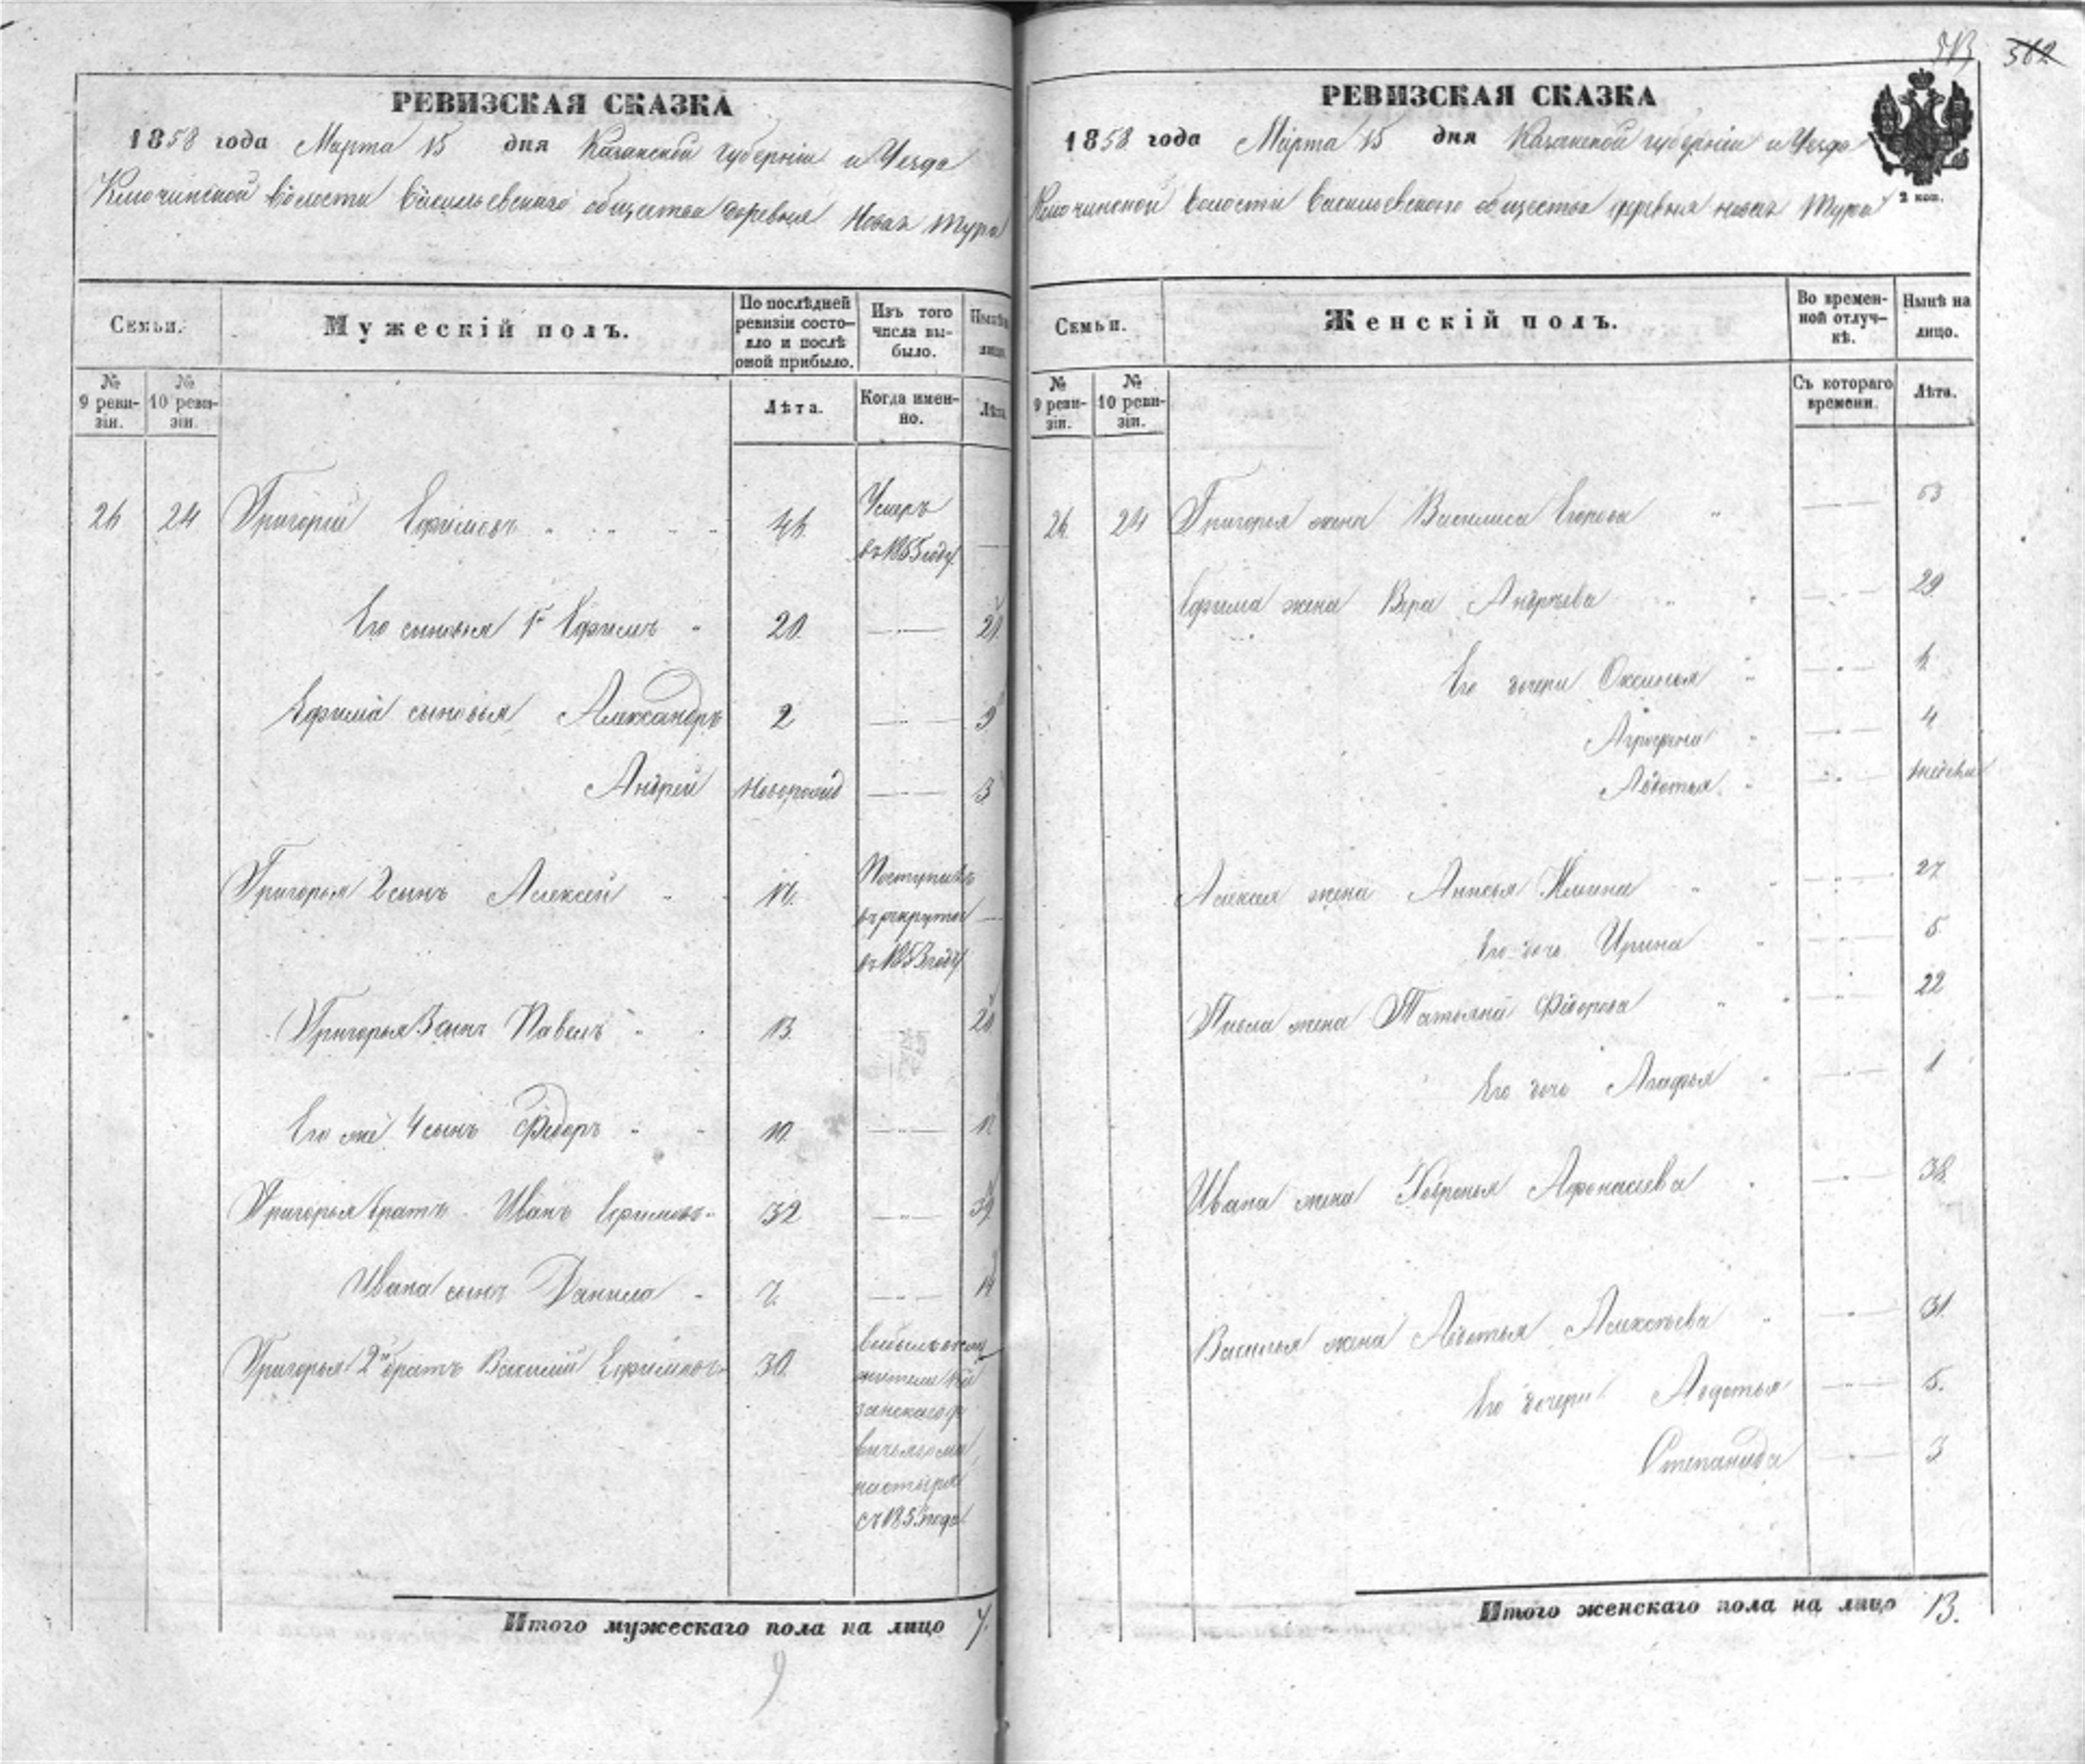 РЕВИЗСКАЯ СКАЗКА
1858 года Марта 15 дня Казанской губернiи и Уезда
Ключинской волости Васильевскаго общества деревня Новая Тура
Семьи.
Мужескiй полъ.
По послѣдней ревизiи состо-
яло и послѣ оной прибыло.
Изъ того числа вы-
было.
№ 9 реви-
зiи.
№ 10 реви-
зiи.
Лѣта.
Когда имен-
но.
Лѣта
26 24 Григорiй Ефимовъ 46. Умеръ
въ 1855 году
Его сыновья 1й Ефимъ 20.
Ефима сыновья Александръ 2 9
Андрей Новорожд 8
Григорья 2 сынъ Алексей 16. Поступилъ
въ рекруты
въ 1853 году
Григорья 3 сынъ Павелъ 13.
Его же 4 сынъ Федоръ 10.
Григорья братъ Иванъ Ефимовъ 32 39
Ивана сынъ Данило 7. 14
Григорья 2й братъ Василий Ефимовъ 30.
с 185 года
Итого мужескаго пола на лицо 7.
9
513 562
РЕВИЗСКАЯ СКАЗКА
1858 года Марта 15 дня Казанской губернiи и Уезда
2 коп.
Ключинской волости Васильевского общества деревня новая Тура
Семьи.
Женскiй полъ.
Во времен-
ной отлуч-
кѣ.
Нынѣ на
лицо.
№ 9 реви-
зiи.
№ 10 реви-
зiи.
Съ котораго
времени.
Лѣта.
26. 24 Григорья жена Василиса Егорова 53
Ефима жена Вера Андреева 29
Его дочери Оксинья
Аграфена 4
Авдотья недели
Алексея жена Анисья Ильина 27
Его дочь Ирина 5
Павла жена Татьяна Федорова 22
Его дочь Агафья 1
Ивана жена Афонасьева 38.
Василья жена Авдотья Алексеева 31.
Его дочери Авдотья 5.
Степанида 3
Итого женскаго пола на лицо 13.